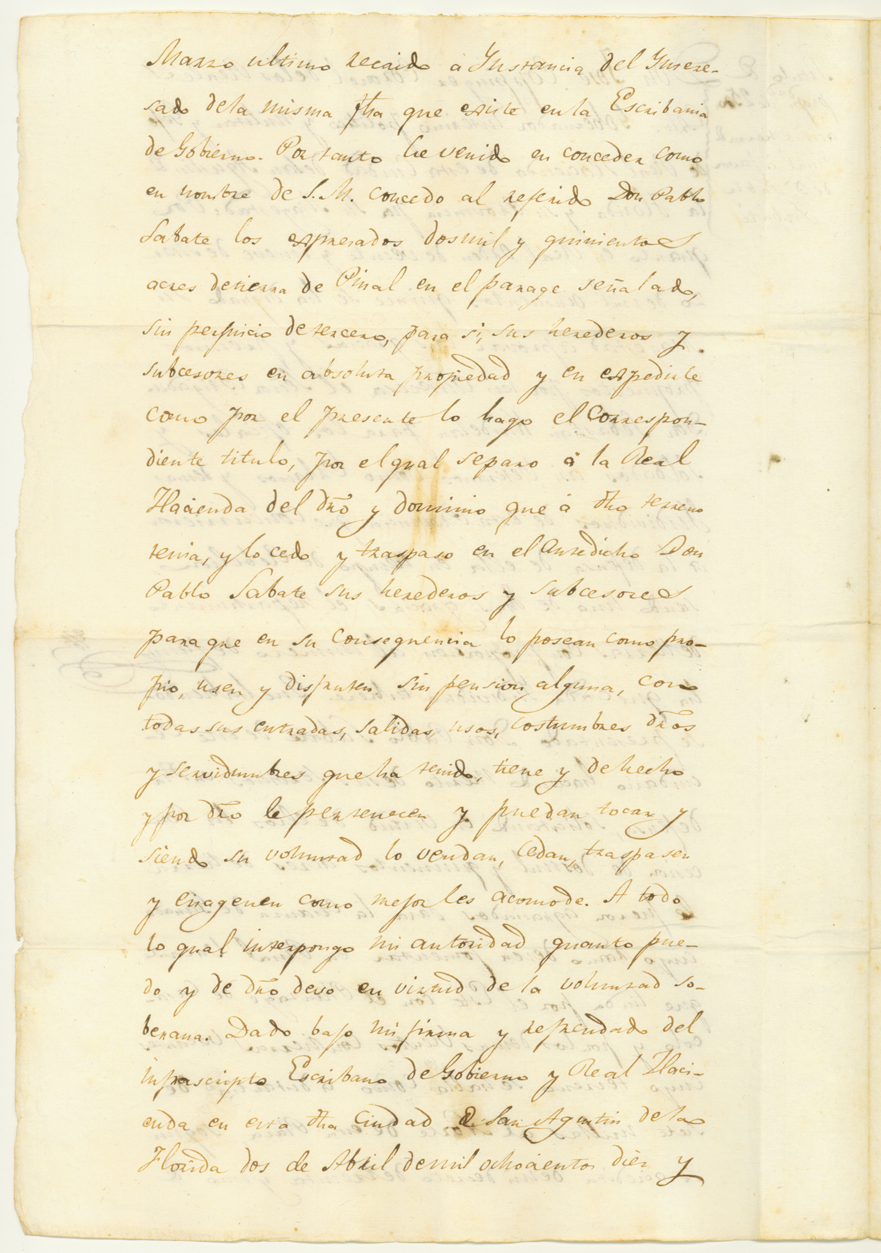 Marzo ultimo recaido a Instancia del Intere-
sado dela misma fha que existe en la Escribania
de Gobierno. Por tanto he venido en conceder como
en nombre de S. M. concedo al referido Don Pablo
Sabate los expresados dosmil y quinientos
acres detierra de Pinal en el parage señalado,
sin perjuicio de tercero, para si, sus herederos y
subcesores en absoluta propiedad y en expedirle
como por el presente lo hago el Correspon-
diente titulo, por el qual separo á la Real
Hacienda del dr̃o y dominio que á dha terreno
tenia, y lo cedo y traspaso en el Antedicho Don
Pablo Sabate sus herederos y subcesores
paraque en su Consequencia lo posean como pro-
pio, usen y disfruten sin pension alguna, con
todas sus entradas, salidas, usos, costumbres dr̃os
y servidumbres que ha tenido, tiene y de hecho
y por dr̃o le pertenecen y puedan tocar y
siendo su voluntad lo vendan, cedan, traspasen
y enagenen como mejor les acomode. A todo
lo qual interpongo mi autoridad quanto pue-
do y de dr̃o devo en virtud de la voluntad so-
berana. Dado bajo mi firma y refrendado del
infrascripto Escribano de Gobierno y Real Haci-
enda en esta dha Ciudad de San Agustin de la
Florida dos de Abril demil ochocientos diez y